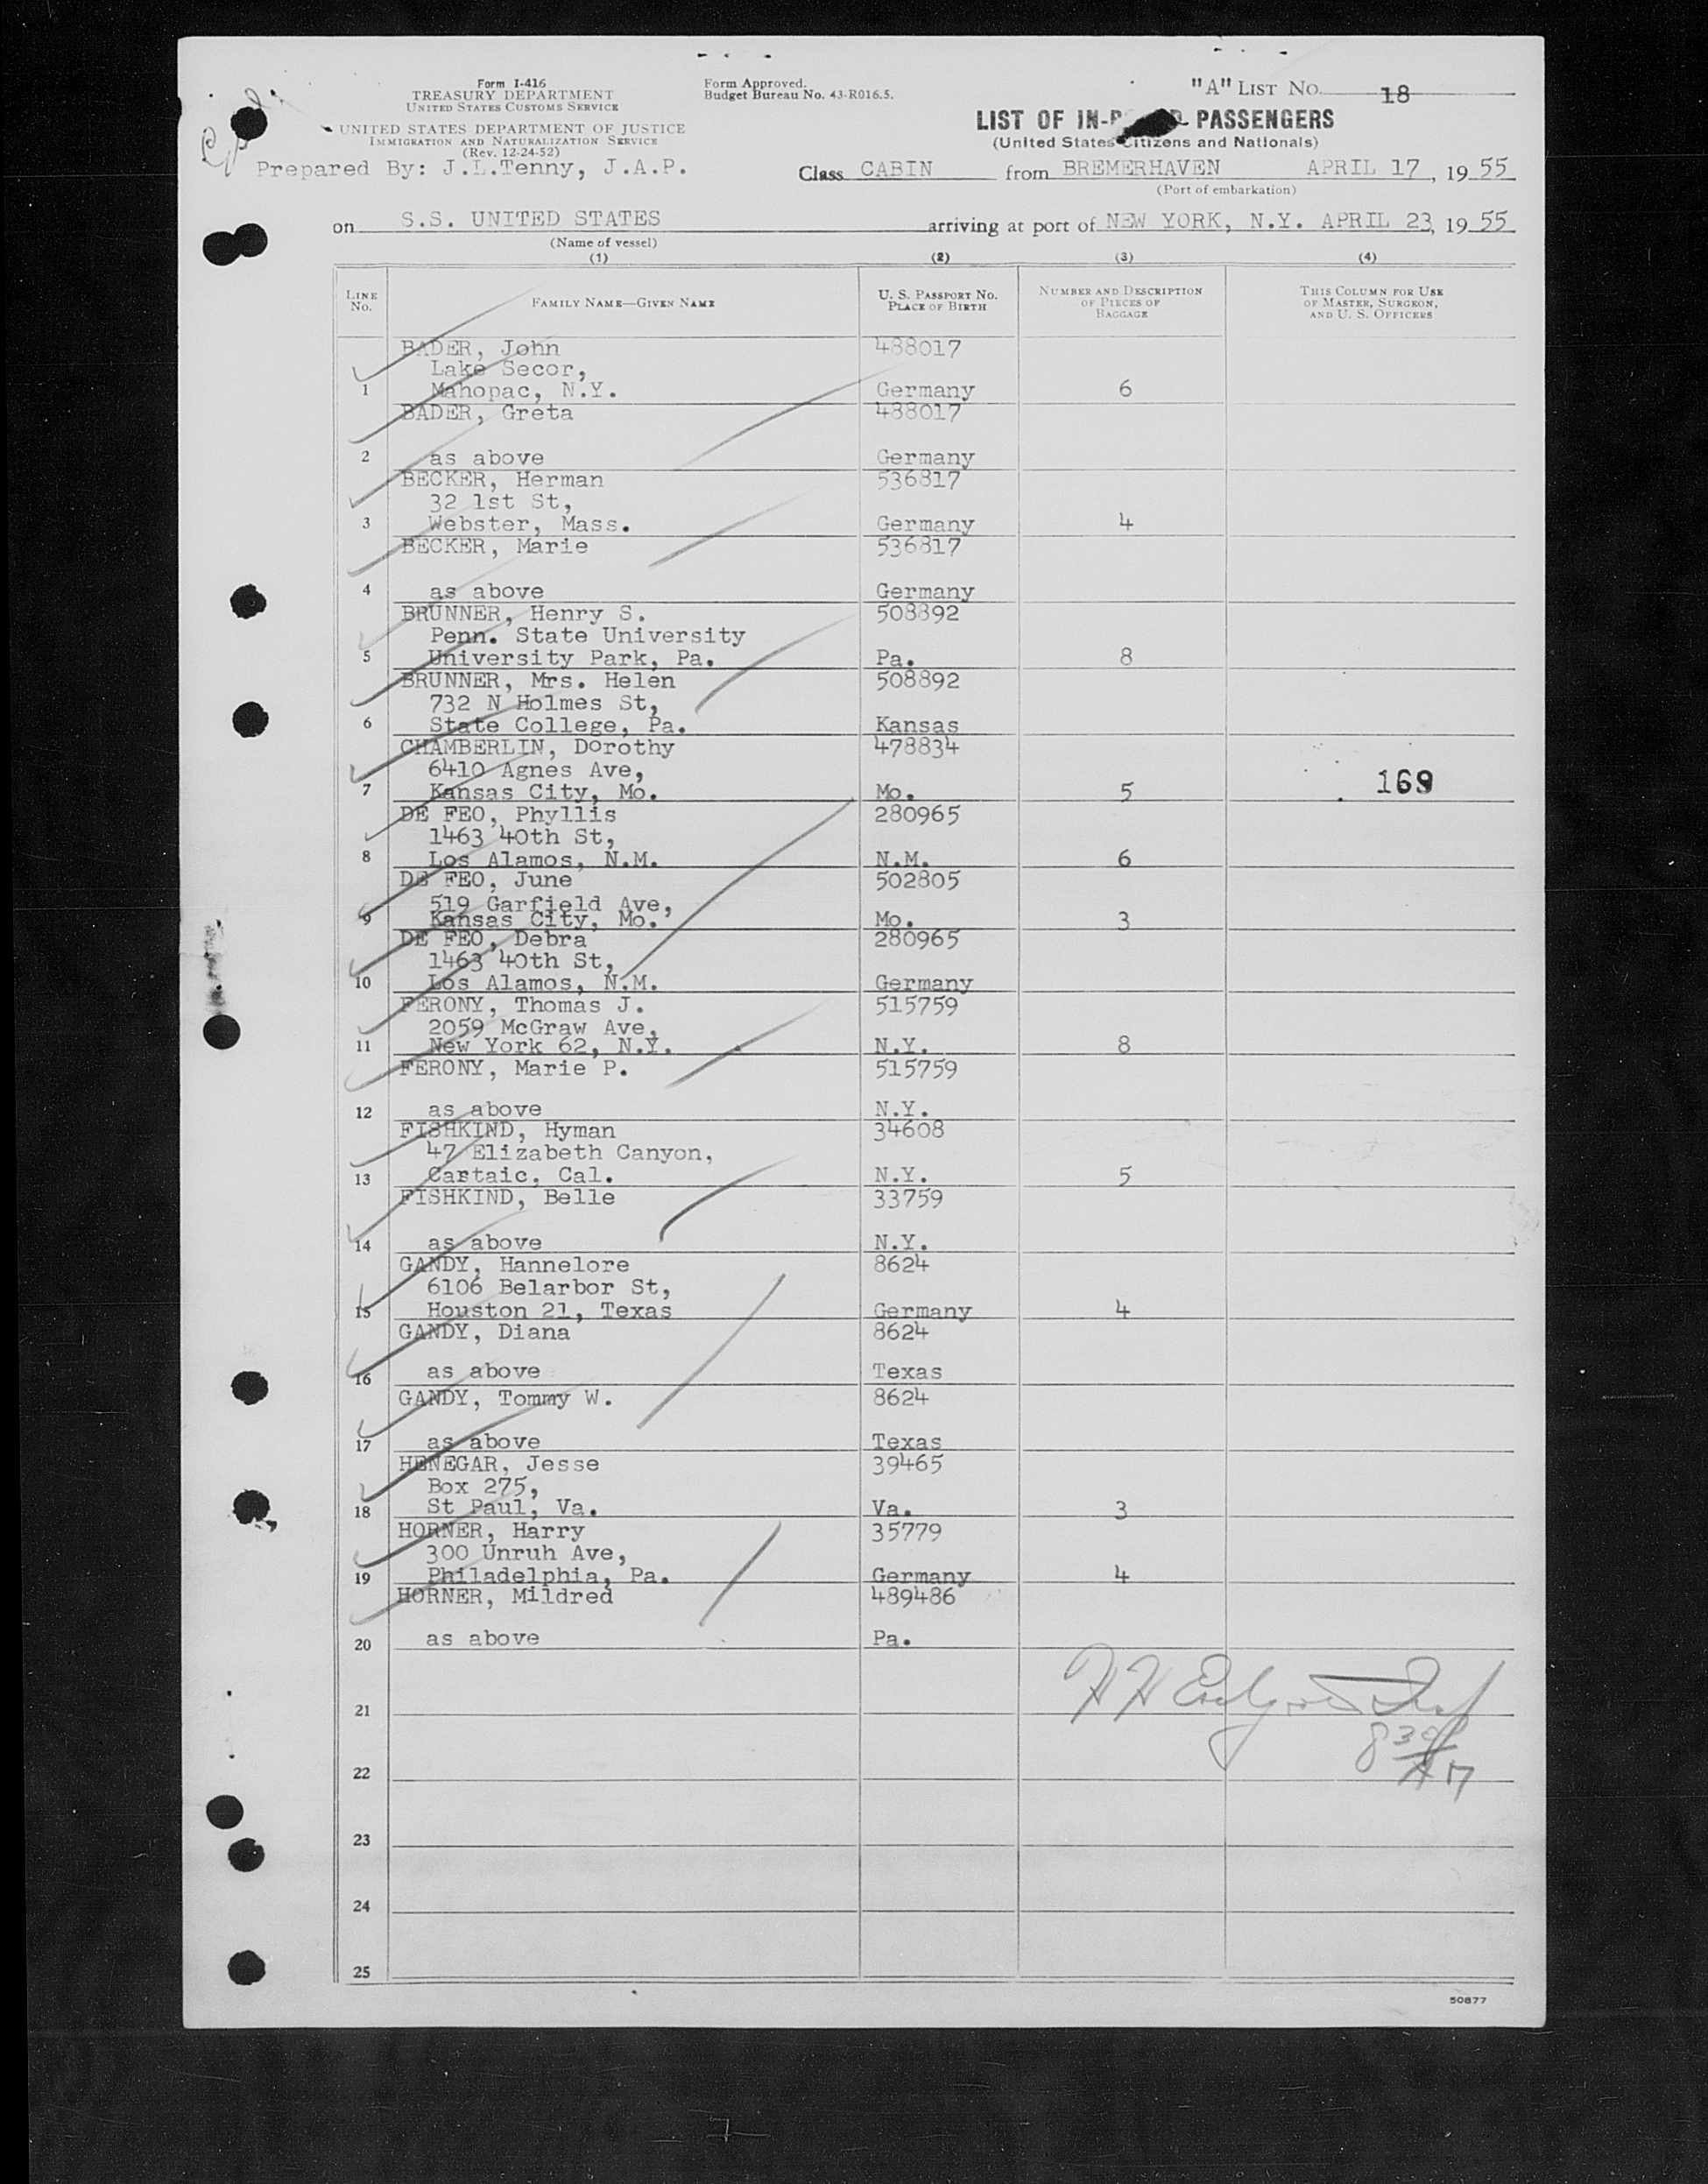 Form I-416
TREASURY DEPARTMENT
UNITED STATES CUSTOMS SERVICE
UNITED STATES DEPARTMENT OF JUSTICE
IMMIGRATION AND NATURALIZATION SERVICE
(Rev. 12-24-52)
Prepared By: J.L.Tenny, J.A.P.
Form Approved.
Budget Bureau No. 43-R016.5.
"A" LIST NO. 18
LIST OF IN- PASSENGERS
(United States Citizens and Nationals)
Class CABIN from BREMERHAVEN APRIL 17, 1955
(Port of embarkation)
on S.S. UNITED STATES arriving at port of NEW YORK, N.Y. APRIL 23, 1955
(Name of vessel)
(1) (2) (3) (4)
LINE No. FAMILY NAME—GIVEN NAME U. S. PASSPORT NO. PLACE OF BIRTH NUMBER AND DESCRIPTION OF PIECES OF BAGGAGE THIS COLUMN FOR USE OF MASTER, SURGEON, AND U. S. OFFICERS
BADER, John 488017
Lake Secor,
1 Mahopac, N.Y. Germany 6
BADER, Greta 488017
2 as above Germany
BECKER, Herman 536817
32 1st St,
3 Webster, Mass. Germany 4
BECKER, Marie 536817
4 as above Germany
BRUNNER, Henry S. 508892
Penn. State University
5 University Park, Pa. Pa. 8
BRUNNER, Mrs. Helen 508892
732 N Holmes St,
6 State College, Pa. Kansas
CHAMBERLIN, Dorothy 478834
6410 Agnes Ave,
7 Kansas City, Mo. Mo. 5 169
DE FEO, Phyllis 280965
1463 40th St,
8 Los Alamos, N.M. N.M. 6
DE FEO, June 502805
519 Garfield Ave,
9 Kansas City, Mo. Mo. 3
DE FEO, Debra 280965
1463 40th St,
10 Los Alamos, N.M. Germany
FERONY, Thomas J. 515759
2059 McGraw Ave,
11 New York 62, N.Y. N.Y. 8
FERONY, Marie P. 515759
12 as above N.Y.
FISHKIND, Hyman 34608
47 Elizabeth Canyon,
13 Castaic, Cal. N.Y. 5
FISHKIND, Belle 33759
14 as above N.Y.
GANDY, Hannelore 8624
6106 Belarbor St,
15 Houston 21, Texas Germany 4
GANDY, Diana 8624
16 as above Texas
GANDY, Tommy W. 8624
17 as above Texas
HENEGAR, Jesse 39465
Box 275,
18 St Paul, Va. Va. 3
HORNER, Harry 35779
300 Unruh Ave,
19 Philadelphia, Pa. Germany 4
HORNER, Mildred 489486
20 as above Pa.
21
22
23
24
25
50877